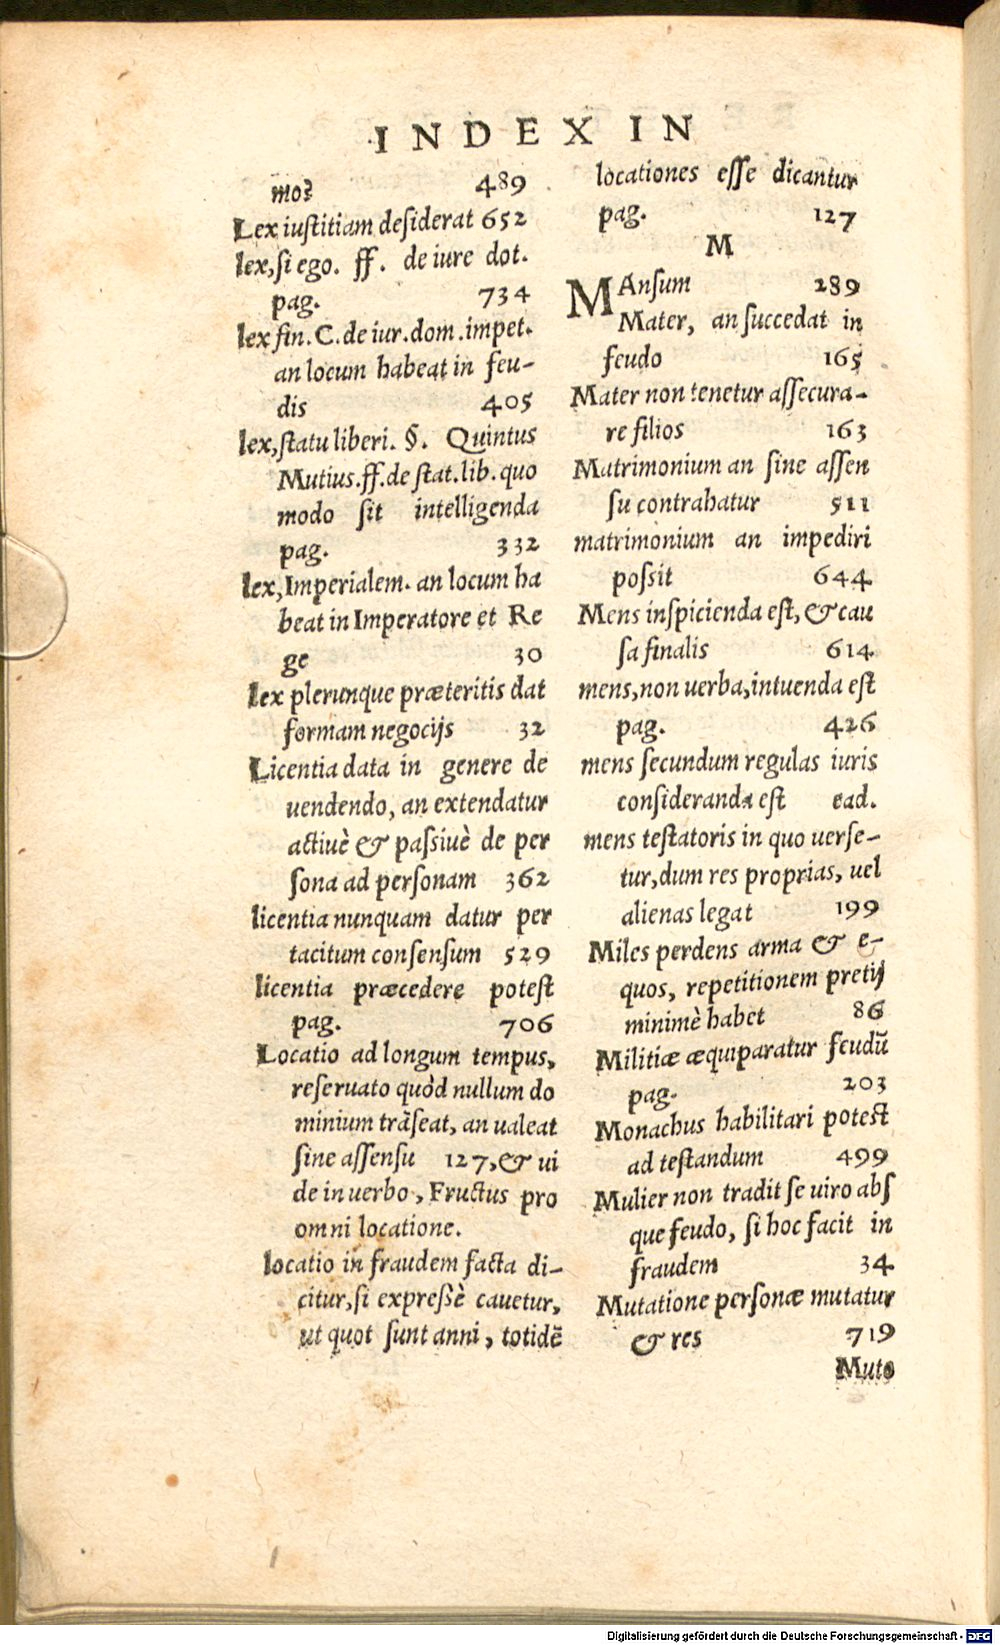 INDEX IN
mo? 489
Lex iuſtitiam deſiderat 652
lex, ſi ego. ff. de iure dot.
pag. 734
lex fin. C. de iur. dom. impet.
an locum habeat in feu-
dis 405
lex, ſtatu liberi. §. Quintus
Mutius. ff. de ſtat. lib. quo
modo ſit intelligenda
pag. 332
lex, Imperialem. an locum ha
beat in Imperatore et Re
ge 30
lex plerunque præteritis dat
formam negocijs 32
Licentia data in genere de
uendendo, an extendatur
actiuè & paſsiuè de per
ſona ad perſonam 362
licentia nunquam datur per
tacitum conſenſum 529
licentia præcedere poteſt
pag. 706
Locatio ad longum tempus,
reſeruato quòd nullum do
minium trāſeat, an ualeat
ſine aſſenſu 127, & ui
de in uerbo, Fructus pro
omni locatione.
locatio in fraudem facta di-
citur, ſi expreſsè cauetur,
ut quot ſunt anni, totidē
locationes eſſe dicantur
pag. 127
M
MAnſum 289
Mater, an ſuccedat in
feudo 165
Mater non tenetur aſſecura-
re filios 163
Matrimonium an ſine aſſen
ſu contrahatur 511
matrimonium an impediri
poſsit 644
Mens inſpicienda eſt, & cau
ſa finalis 614
mens, non uerba, intuenda eſt
pag. 426
mens ſecundum regulas iuris
conſideranda eſt ead.
mens teſtatoris in quo uerſe-
tur, dum res proprias, uel
alienas legat 199
Miles perdens arma & e-
quos, repetitionem pretij
minimè habet 86
Militiæ æquiparatur feudū
pag. 203
Monachus habilitari poteſt
ad teſtandum 499
Mulier non tradit ſe uiro abſ
que feudo, ſi hoc facit in
fraudem 34
Mutatione perſonæ mutatur
& res 719
Muto
Digitalisierung gefördert durch die Deutsche Forschungsgemeinschaft - DFG